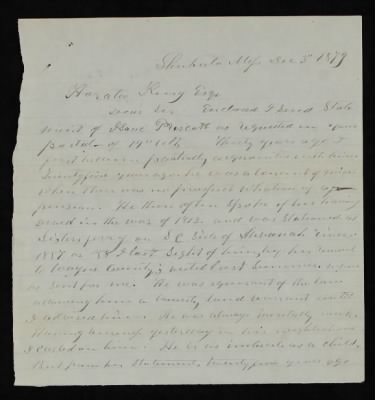 Shubuta Miss Dec 5th 1879
Horatio King Esq
Dear Sir Enclosed I send State
ment of Isaac Prescott as requested in your
postal of 19th ulto Thirty years ago I
first became partially acquainted with him
Twenty five years ago he was a tenant of mine
when there was no prospect whatever of a
pension. He then often spoke of his having
served in the war of 1812 and was stationed at
Sisters ferry on S C Side of Savanah river
1857 or 58 I lost sight of him, he moved
to Wayne County; until last Summer
he sent for me. He was ignorant of the law
allowing him a bounty land warrant until
I advised him. He was always mentally weak.
Having business yesterday in his neighborhood
I called on him. He is as imbecile as a child.
But from his Statement, twenty five years ago